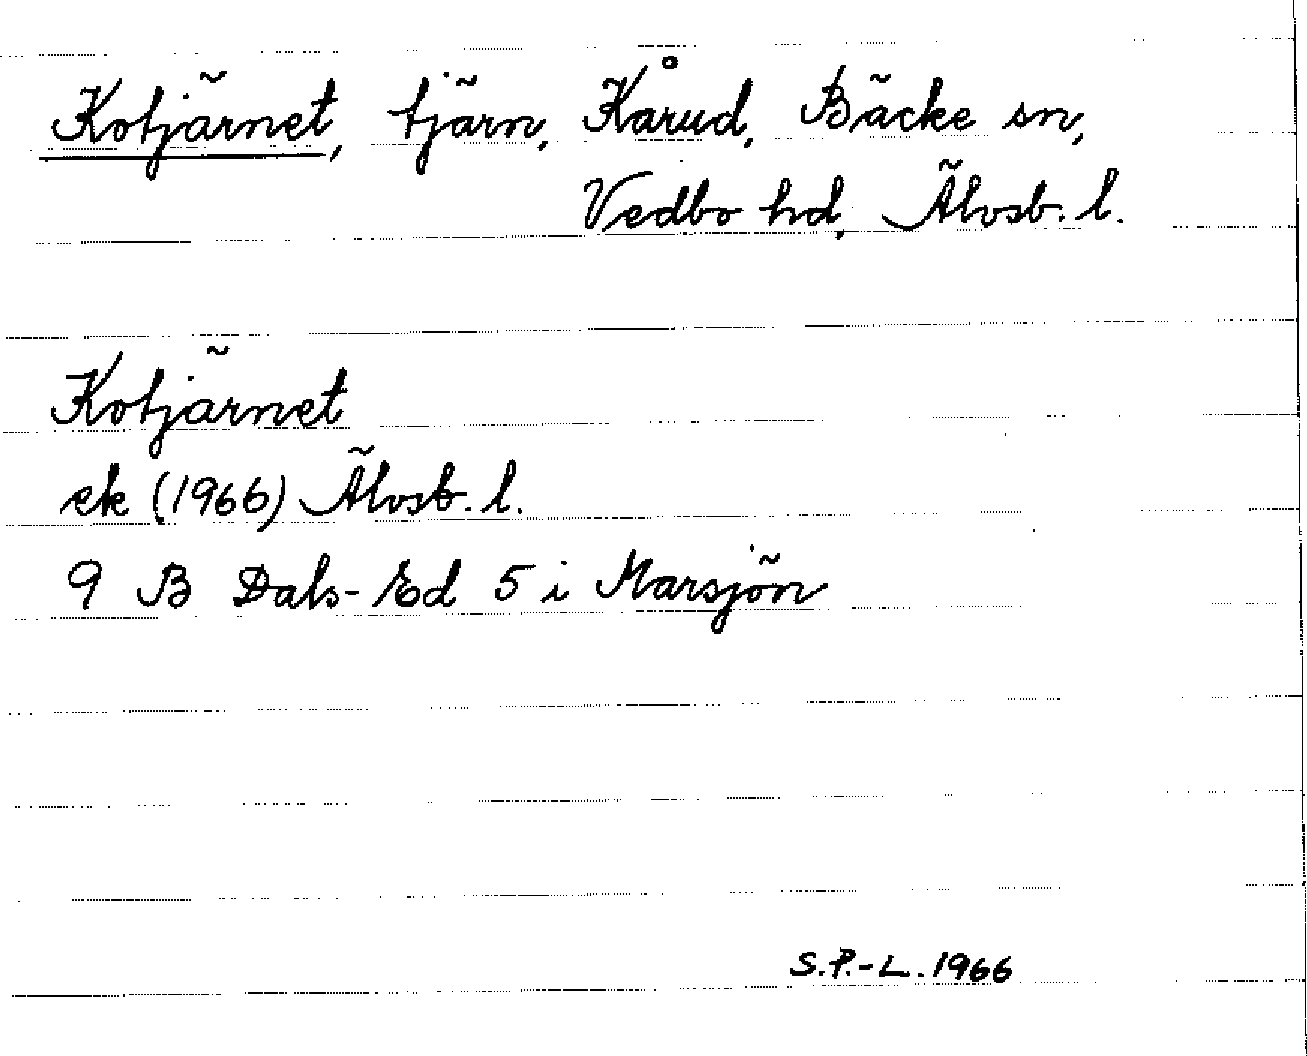 Kotjärnet, tjärn, Kårud, Bäcke sn,
Vedbo hd, Älvsb. l.
Kotjärnet
ek (1966) Älvsb. l.
9 B Dals-Ed 5 i Marsjön
S.P.-L. 1966